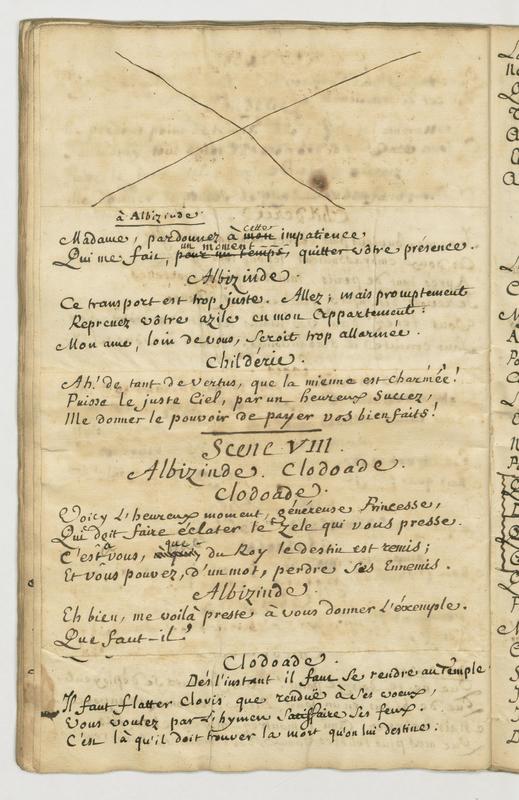 à Albizinde.
Madame, pardonnez à mon cette impatience,
Qui me fait, pour un temps, un moment quitter vôtre présence.
Albizinde.
Ce transport est trop juste. Allez; mais promptement
Reprenez vôtre azile en mon Appartement:
Mon ame, loin de vous, seroit trop allarmée.
Childéric.
Ah! de tant de vertus, que la mienne est charmée!
Puisse le juste Ciel, par un heureux succez,
Me donner le pouvoir de payer vos bienfaits!
Scene VIII.
Albizinde. Clodoade.
Clodoade.
Voicy l'heureux moment, généreuse Princesse,
Qui doit faire éclater le zele qui vous presse.
C'est à vous, que du Roy le destin est remis;
Et vous pouvez, d'un mot, perdre ses Ennemis.
Albizinde.
Eh bien, me voilà preste à vous donner l'éxemple.
Que faut-il?
Clodoade.
Dès l'instant il faut se rendre au Temple
Il faut flatter Clovis que rendüe à ses voeux,
Vous voulez par l'hymen satisfaire ses feux.
C'est là qu'il doit trouver la mort qu'on lui destine.